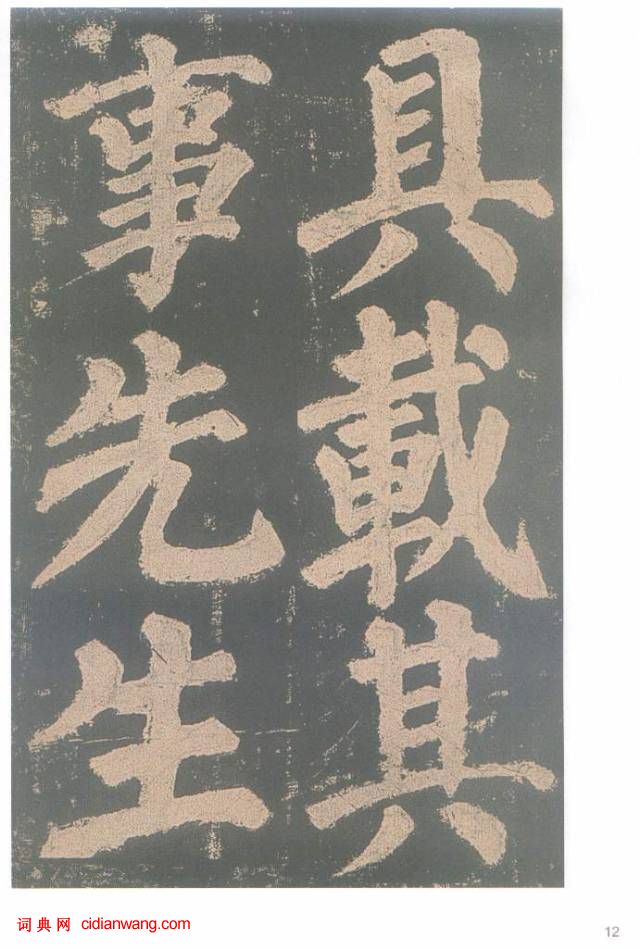 具載其
事先生
词典网 cidianwang.com
12